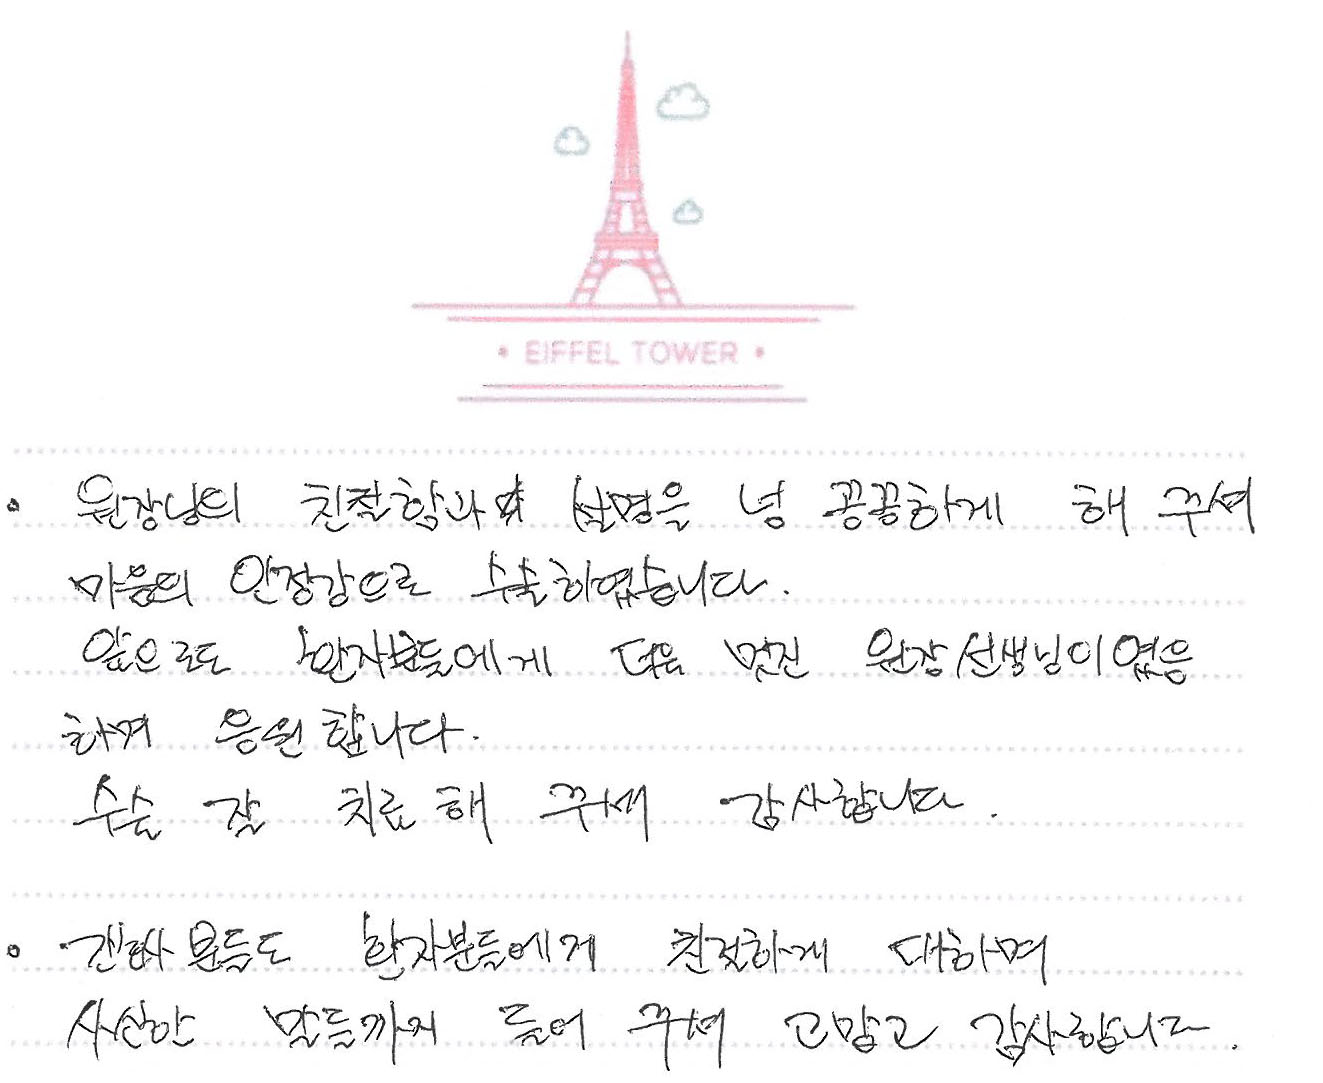 • EIFFEL TOWER •
• 원장님의 친절함과 설명을 넘 꼼꼼하게 해 주셔
마음의 안정감으로 수술하였습니다.
앞으로도 환자분들에게 더욱 멋진 원장선생님이였음
하며 응원합니다.
수술 잘 치료해 주셔 감사합니다.
• 간호사분들도 환자분들에게 친절하게 대하며
사소한 말들까지 들어 주셔 고맙고 감사합니다.